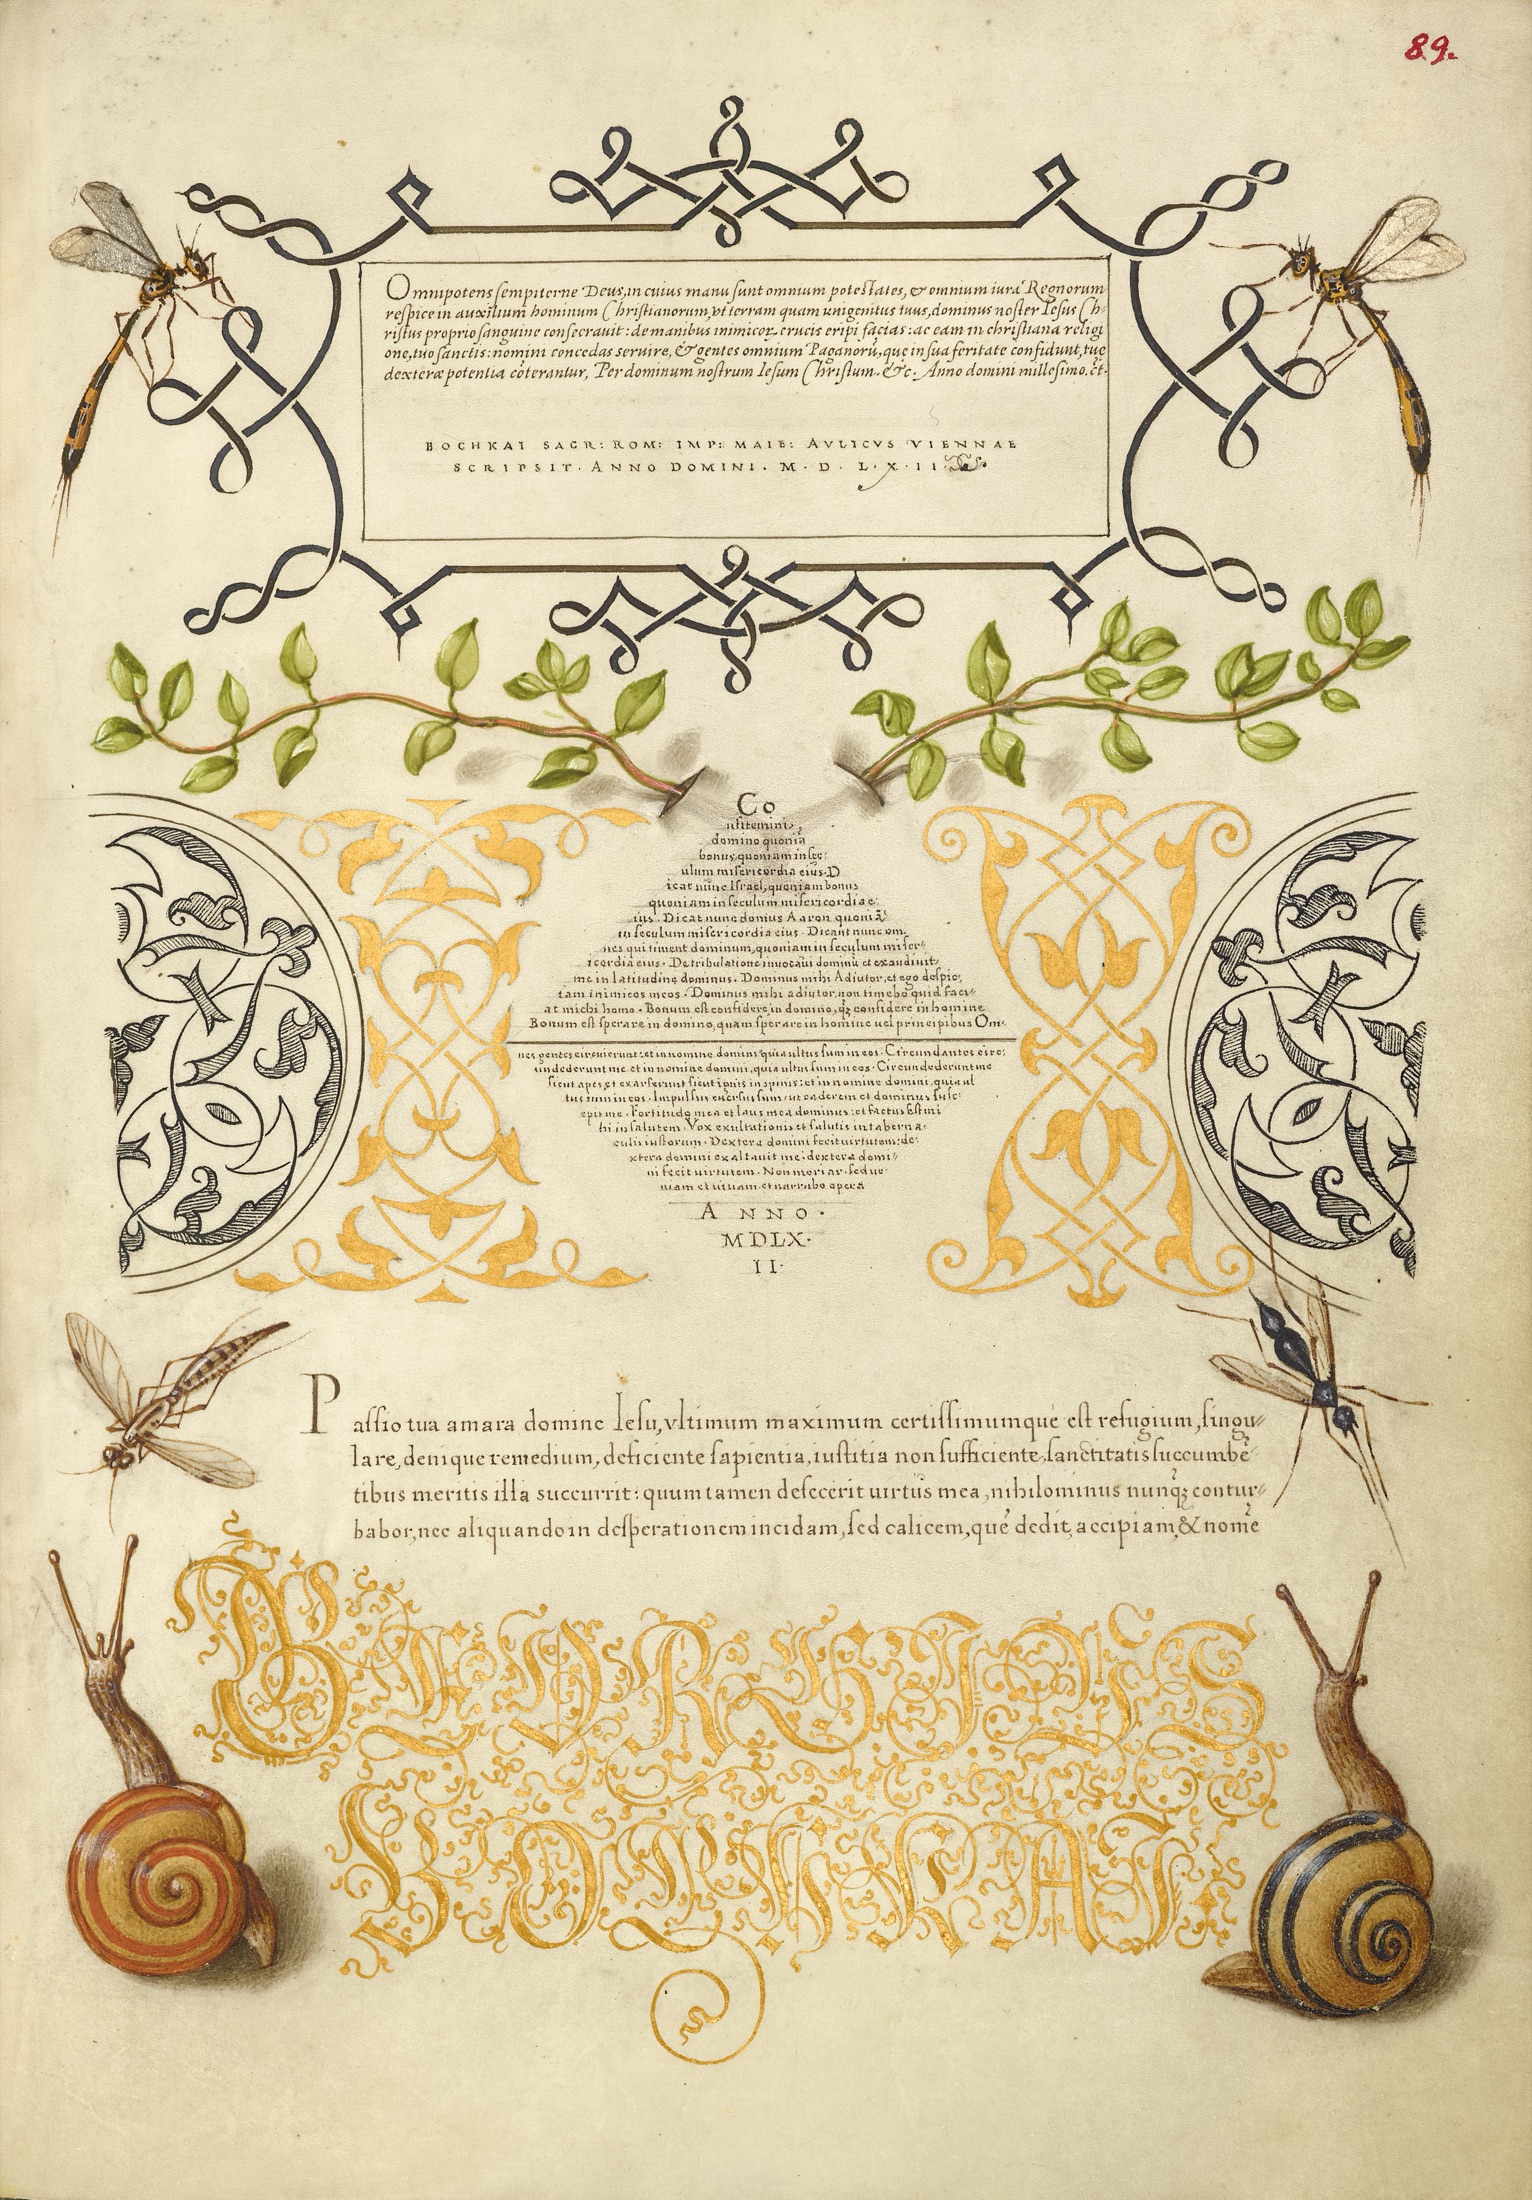 89.
Omnipotens sempiterne Deus, in cuius manu sunt omnium potestates, & omnium iura Regnorum
respice in auxilium hominum Christianorum, vt terram quam unigenitus tuus, dominus noster Iesus Ch-
ristus proprio sanguine consecrauit: de manibus inimicoꝝ crucis eripi facias: ac eam in christiana religi
one, tuo sanctis: nomini concedas seruire, & gentes omnium Paganorū, que in sua feritate confidunt, tue
dexteræ potentia cōterantur, Per dominum nostrum Iesum Christum. &c. Anno domini millesimo. ct.
BOCHKAI SACR: ROM: IMP: MAIE: AVLICVS VIENNAE
SCRIPSIT. ANNO DOMINI. M. D. L. X. II
Co
nfitemini
domino quoniā
bonus, quoniam in sec:
ulum misericordia eius. D
icat nunc Israel, quoniam bonus
quoniam in seculum misericordia e:
ius. Dicat nunc domus Aaron quoniā
in seculum misericordia eius. Dicant nunc om
nes qui timent dominum, quoniam in seculum miser-
icordia eius. De tribulatione inuocaui dominū et exaudiuit
me in latitudine dominus. Dominus mihi Adiutor, et ego despic,
iam inimicos meos. Dominus mihi adiutor, non timebo quid faci-
at michi homo. Bonum est confidere in domino, q̄ȝ confidere in homine
Bonum est sperare in domino, quam sperare in homine uel principibus Om:
nes gentes circuierunt: et in nomine domini, quia ultus sum in eos. Circundantes circ:
undederunt me, et in nomine domini, quia ultus sum in eos. Circundederunt me
sicut apes, et exarserunt sicut ignis in spinis: et in nomine domini, quia ul
tus sum in eos. Impulsus euersus sum, ut caderem et dominus susc:
epit me. Fortitudo mea et laus mea dominus: et factus est mi
hi in salutem. Vox exultationis et salutis in taberna:
culis iustorum. Dextera domini fecit uirtutem: de:
xtera domini exaltauit me: dextera domi-
ni fecit uirtutem. Non moriar sed ui-
uam et narrabo opera
ANNO.
MDLX.
II.
Passio tua amara domine Iesu, vltimum maximum certissimumque est refugium, singu-
lare, denique remedium, deficiente sapientia, iustitia non sufficiente, sanctitatis succumbē-
tibus meritis illa succurrit: quum tamen defecerit uirtus mea, nihilominus nunqȝ contur-
babor, nec aliquando in desperationem incidam, sed calicem, quē dedit, accipiam, & nomē
GEORGIUS
BOCHKAI